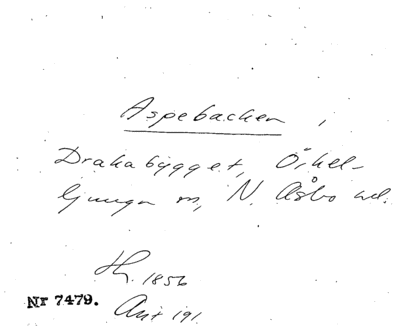 Aspebacken,
Drakabygget, Örkel-
ljunga sn, N. Åsbo hd.
Th. 1856
Nr 7479.
Ant 191.